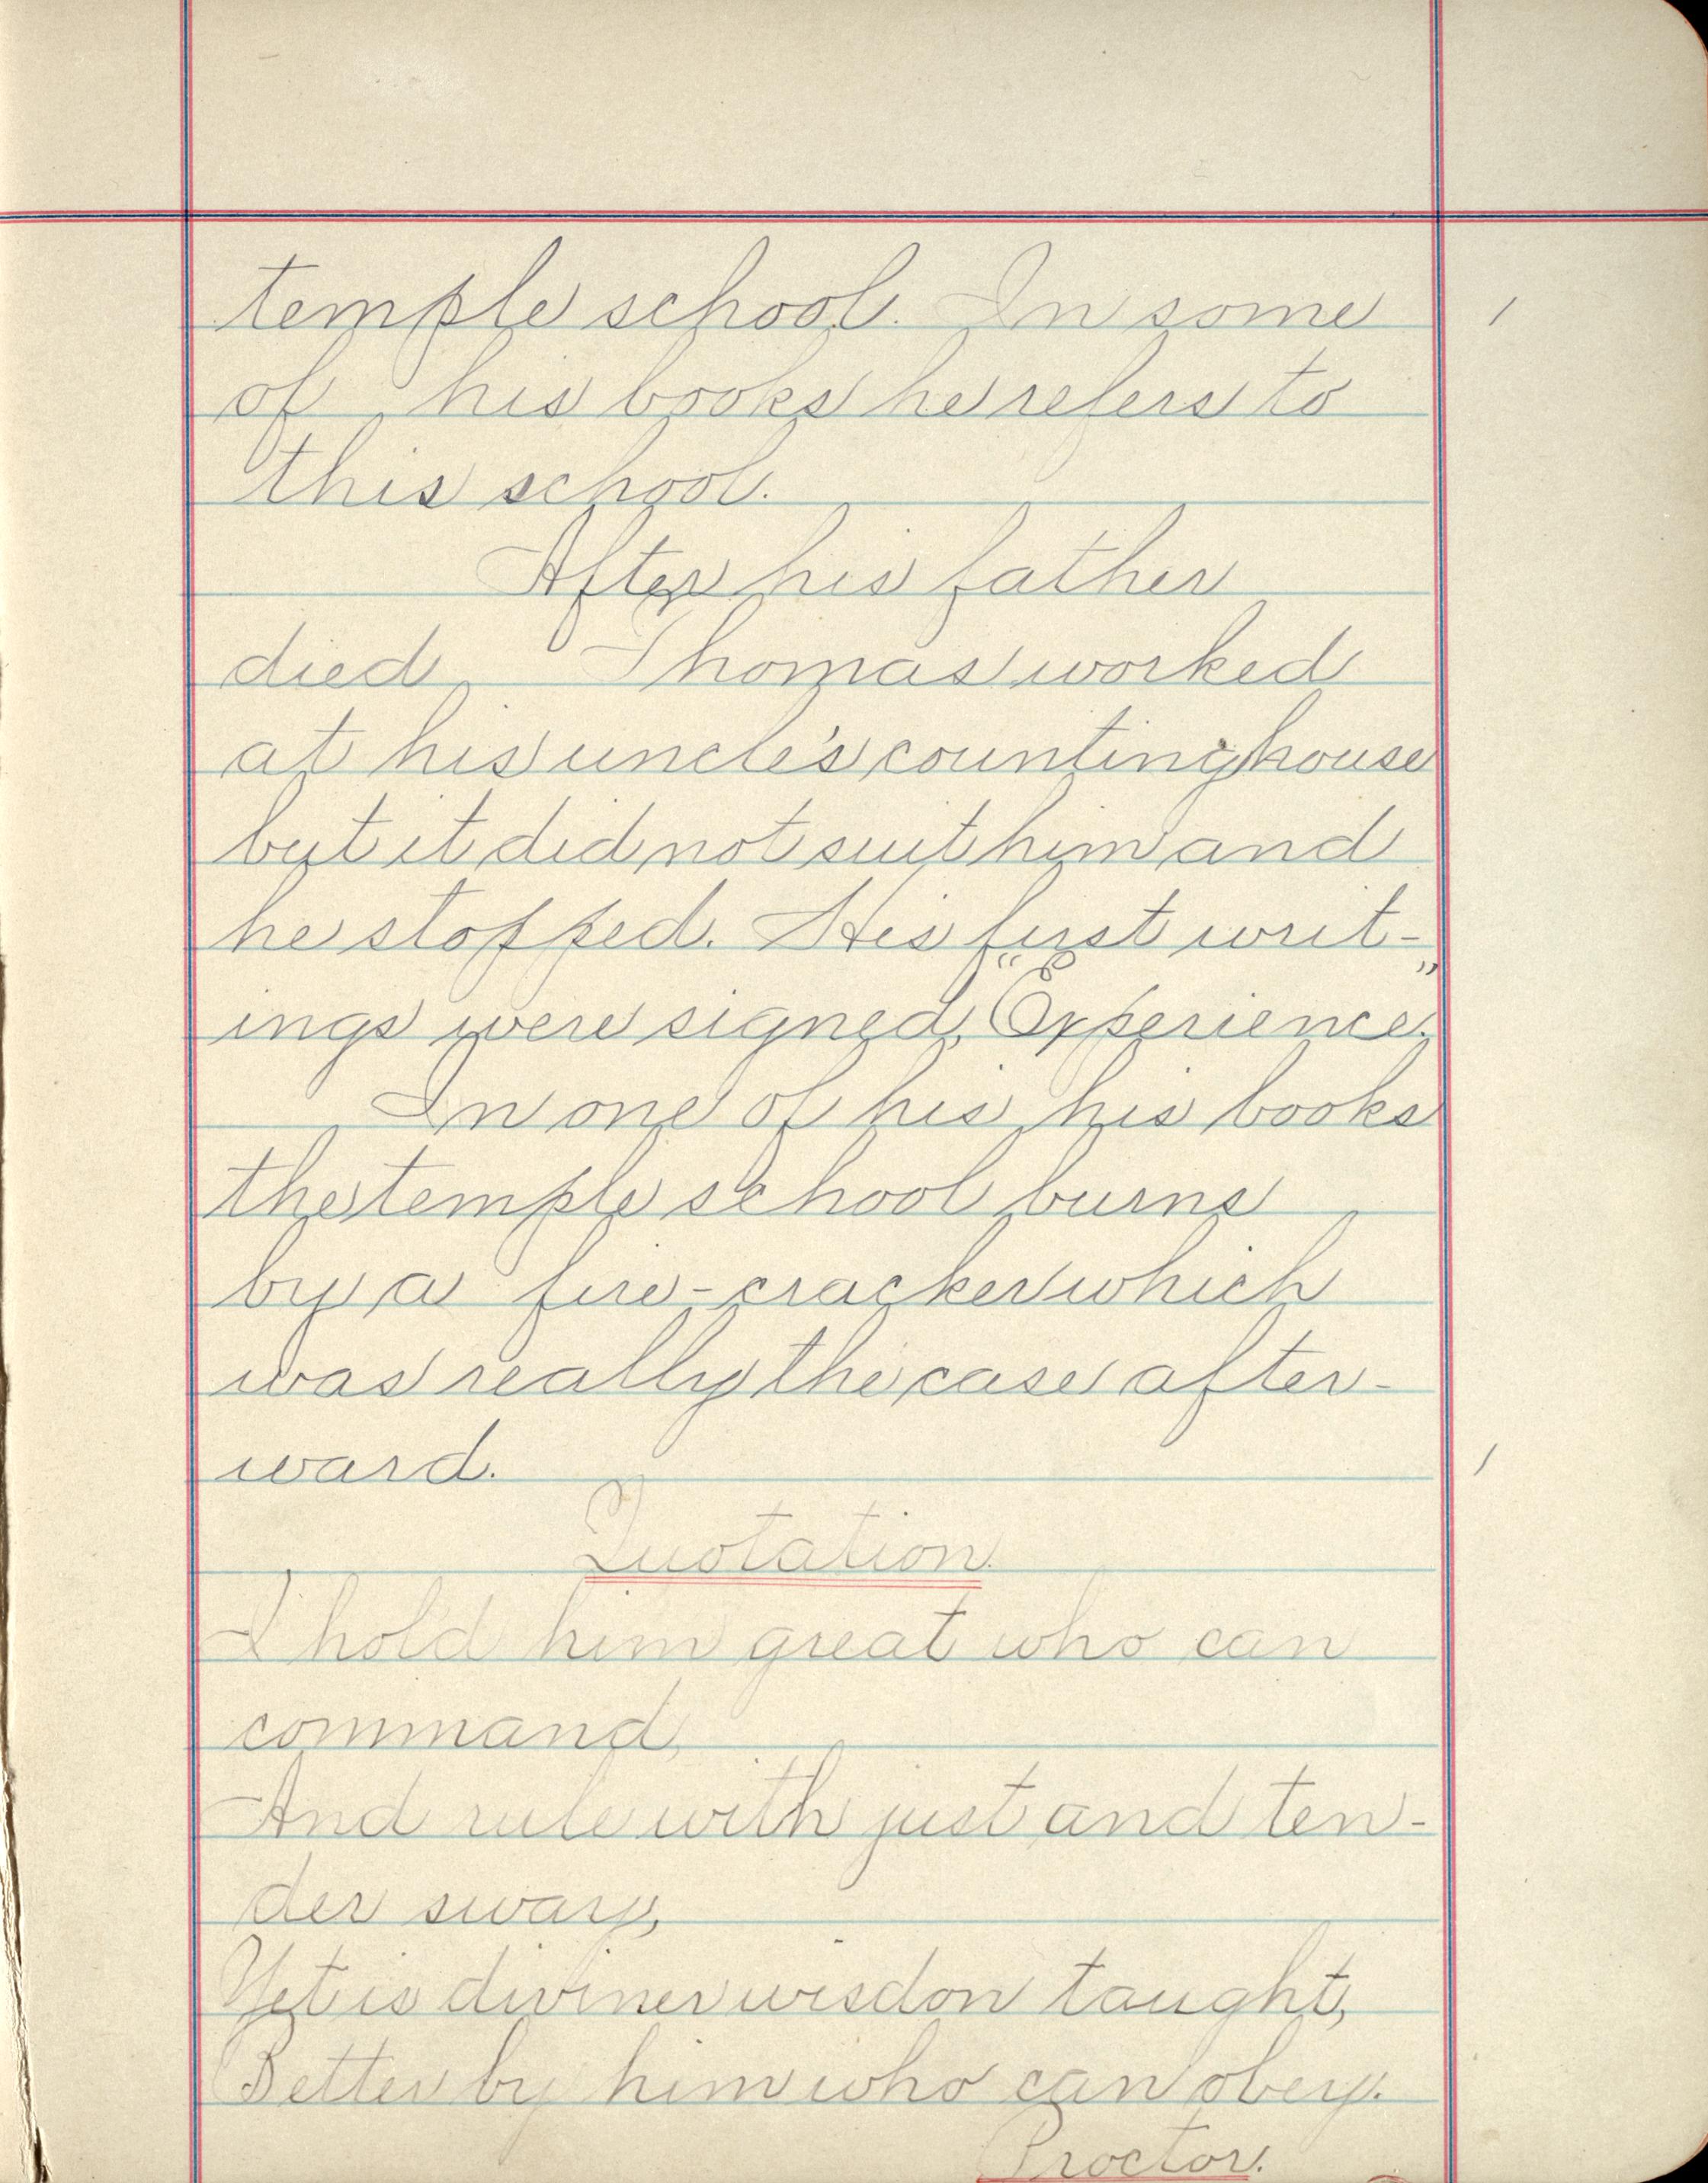 temple school. In some
of his books he refers to
this school.
After his father
died Thomas worked
at his uncle's counting house
but it did not suit him and
he stopped. His first writ-
ings were signed, "Experience."
In one of his his books
the temple school burns
by a fire-cracker which
was really the case after-
ward.
Quotation.
I hold him great who can
command,
And rule with just and ten-
der sway,
Yet is diviner wisdon taught,
Better by him who can obey.
Proctor.